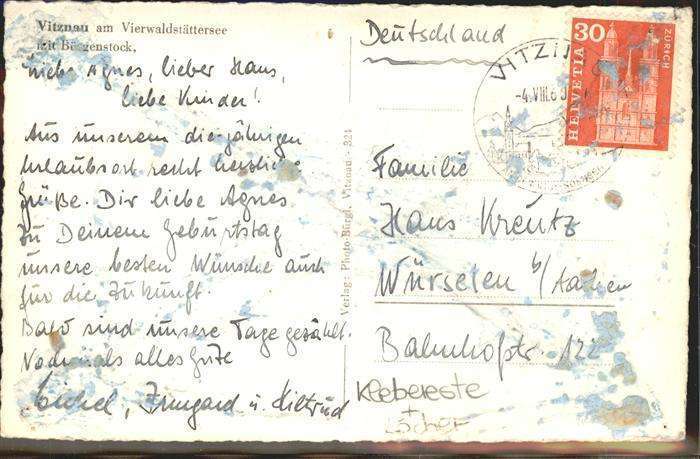 Vitznau am Vierwaldstättersee
mit Bürgenstock,
Liebe Agnes, lieber Hans,
liebe Kinder!
Aus unserem diesjährigen
Urlaubsort recht herzliche
Grüße. Dir liebe Agnes
zu Deinem Geburtstag
unsere besten Wünsche auch
für die Zukunft.
Bald sind unsere Tage gezählt.
Nochmals alles Gute
Irmgard u. Hiltrud
Verlag: Photo-Bürgi, Vitznau - 324
Deutschland
VITZN
-4.VIII.6
30
HELVETIA
ZÜRICH
Familie
Hans Kreutz
Würselen b/Aachen
Bahnhofstr. 122
Klebereste
+
Löcher